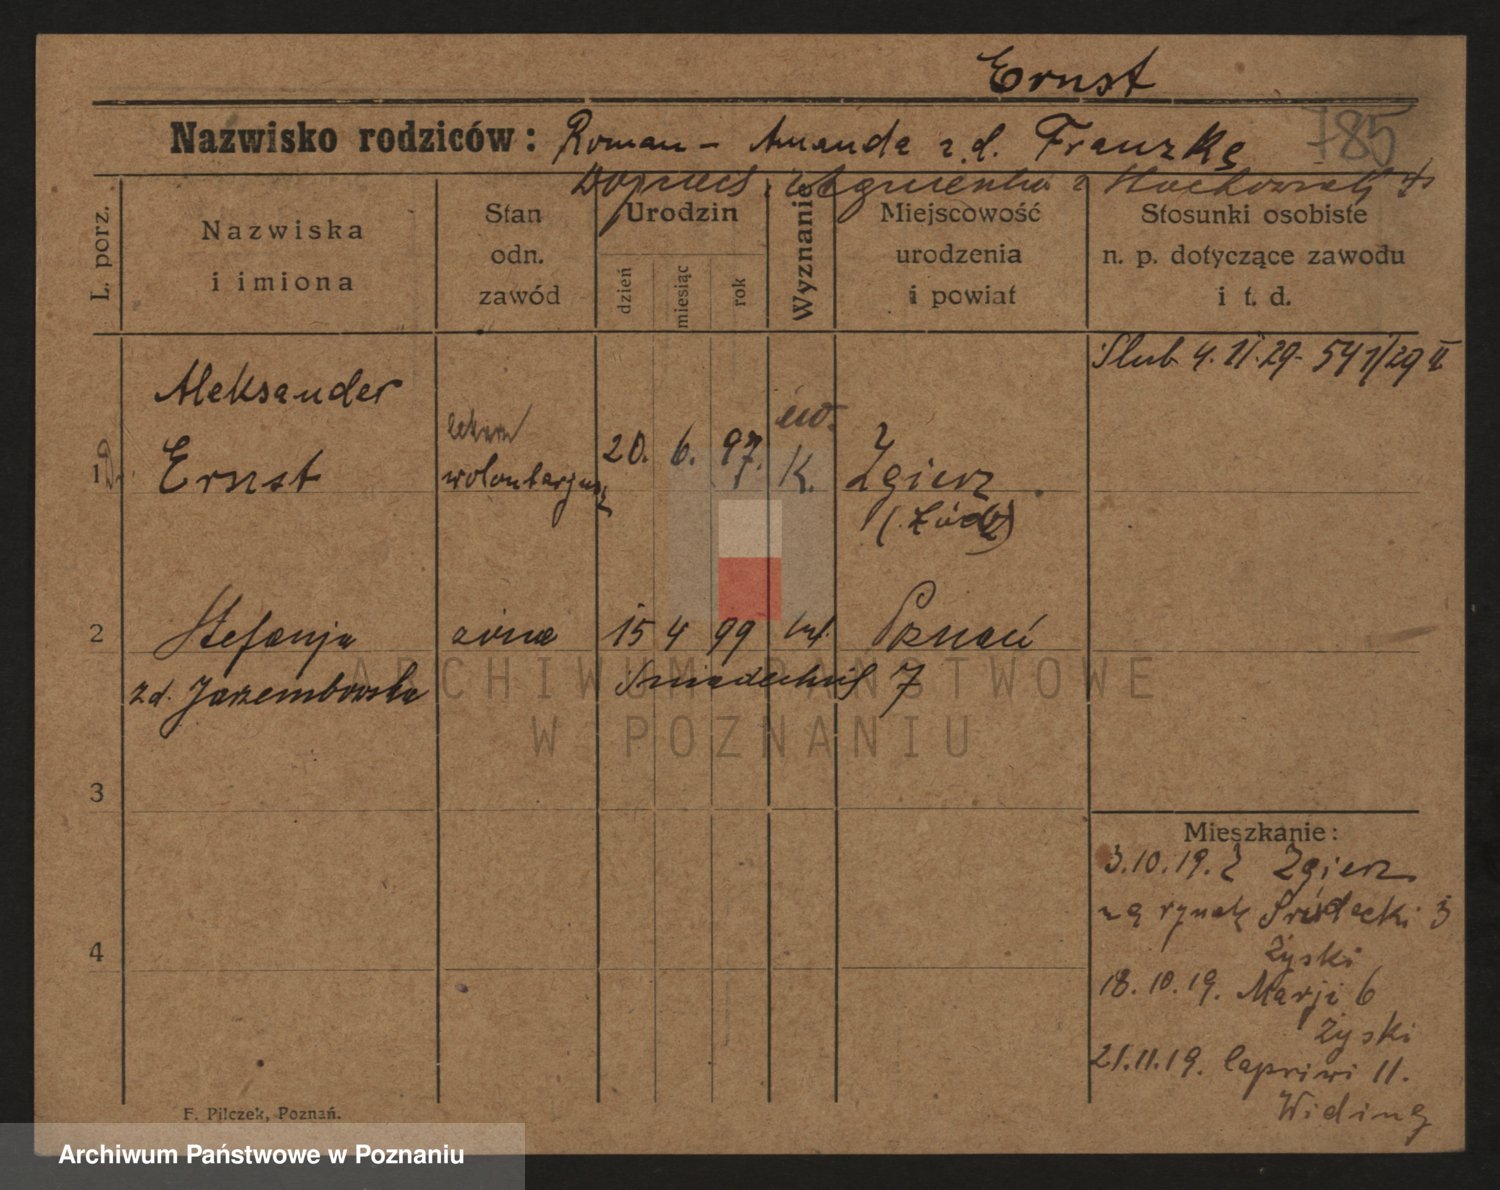 Ernst
Nazwisko rodziców: Roman - Amanda z d. Franzke
785
L. porz.
Nazwiska
i imiona
Stan
odn.
zawód
Urodzin
dzień
miesiąc
rok
Wyznanie
Miejscowość
urodzenia
i powiat
Stosunki osobiste
n. p. dotyczące zawodu
i t. d.
Ślub 4. II. 29 - 541/29 II
Aleksander
1 Ernst
20. 6. 97. K. Zgierz
ew.
(Łódź)
2 Stefanja żona 15 4 99 Poznań
zd. Jarzembowska Śniadeckich 7
3
4
Mieszkanie:
3.10.19. Z Zgierz
na rynek Śródecki 3
Zyski
18.10.19. Marji 6
Zyski
21.11.19. Capriwi 11.
Widing
F. Pilczek, Poznań.
ARCHIWUM PAŃSTWOWE
W POZNANIU
Archiwum Państwowe w Poznaniu